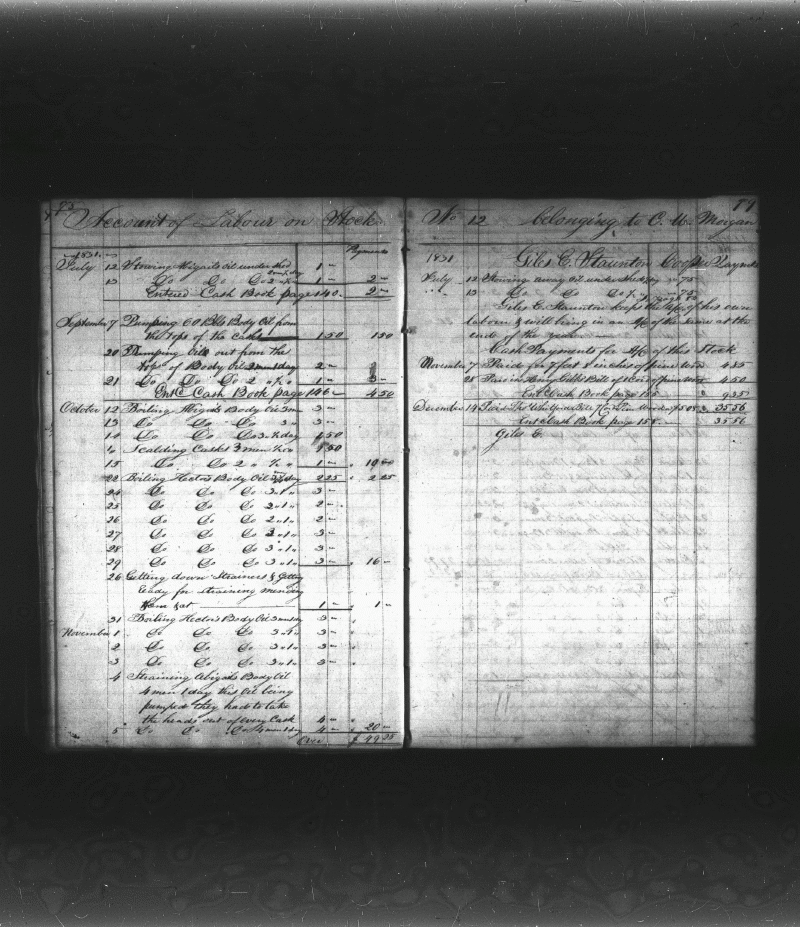 83
Account of Labour on Stock
Payments
1831
July 12 Stowing Abigails oil under shed 2 m ½ day 1 "
13 Do Do Do 2 " ½ " 1 " 2 "
Entered Cash Book page 140. 2 "
September 7 Pumping 60 Bbls Body Oil from
the tops of the casks 1 50 1 50
20 Pumping Oil out from the
tops of Body Oil 2 men 1 day 2 "
21 Do Do Do 2 " ½ " 1 " 3 "
Entd Cash Book page 146 4 50
October 12 Boiling Abigals Body Oil 3 m 3 "
13 Do Do 3 "
14 Do Do Do 3 . ½ day 1 50
" Scalding Casks 3 men ½ 1 50
15 Do Do 2 " ½ " 1 " 10 "
22 Boiling Hectors Body Oil 3 m ¾ day 2 25 2 25
24 Do Do Do 3 " 1 " 3 "
25 Do Do Do 2 " 1 " 2 "
26 Do Do Do 2 " 1 " 2 "
27 Do Do Do 3 " 1 " 3 "
28 Do Do Do 3 " 1 " 3 "
29 Do Do Do 3 " 1 " 3 " 16 "
26 Getting down Strainers & Getting
ready for straining mending
them &at 1 " 1 "
31 Boiling Hectors Body Oil 3 men 1 day 3 "
November 1 Do Do Do 3 " 1 " 3 "
2 Do Do Do 3 " 1 " 3 "
3 Do Do Do 3 " 1 " 3 "
4 Straining Abigals Body Oil
4 men 1 day this Oil being
pumped they had to take
the heads out of every Cask 4 "
5 Do Do Do 4 men 1 day 4 " 20 "
Over $ 49 25
No 12 belonging to C. W. Morgan
1831 Giles C. Staunton Cooper
July 12 Stowing away Oil under shed ½ day " 75
" 13 Do Do Do ½ " " 75
Giles C. Staunton keeps the A/c of his own
labour & will bring in an A/c of the same at the
end of the year
Cash Payments for A/c of this Stock
November 7 Paid for 7 foot 8 inches of pine wood 4 85
28 Paid Henry Bill of of pine wood 4 50
Ent Cash Book page 155 " 9 35
December 14 Paid 35 56
Ent Cash Book page 158 35 56
Giles C.